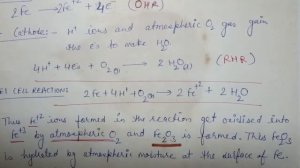 Fe → 2Fe⁺² + 4e⁻ (OHR)
- Cathode:- H⁺ ions and atmospheric O₂ gas gain
the e⁻s to make H₂O.
4H⁺ + 4e⁻s + O₂(g) → 2 H₂O(l) (RHR)
CELL REACTION: 2Fe + 4H⁺ + O₂(g) → 2 Fe⁺² + 2 H₂O
Thus Fe⁺² ions formed in the reaction get oxidised into
Fe⁺³ by atmospheric O₂ and Fe₂O₃ is formed. This Fe₂O₃
is hydrated by atmospheric moisture at the surface of Fe.